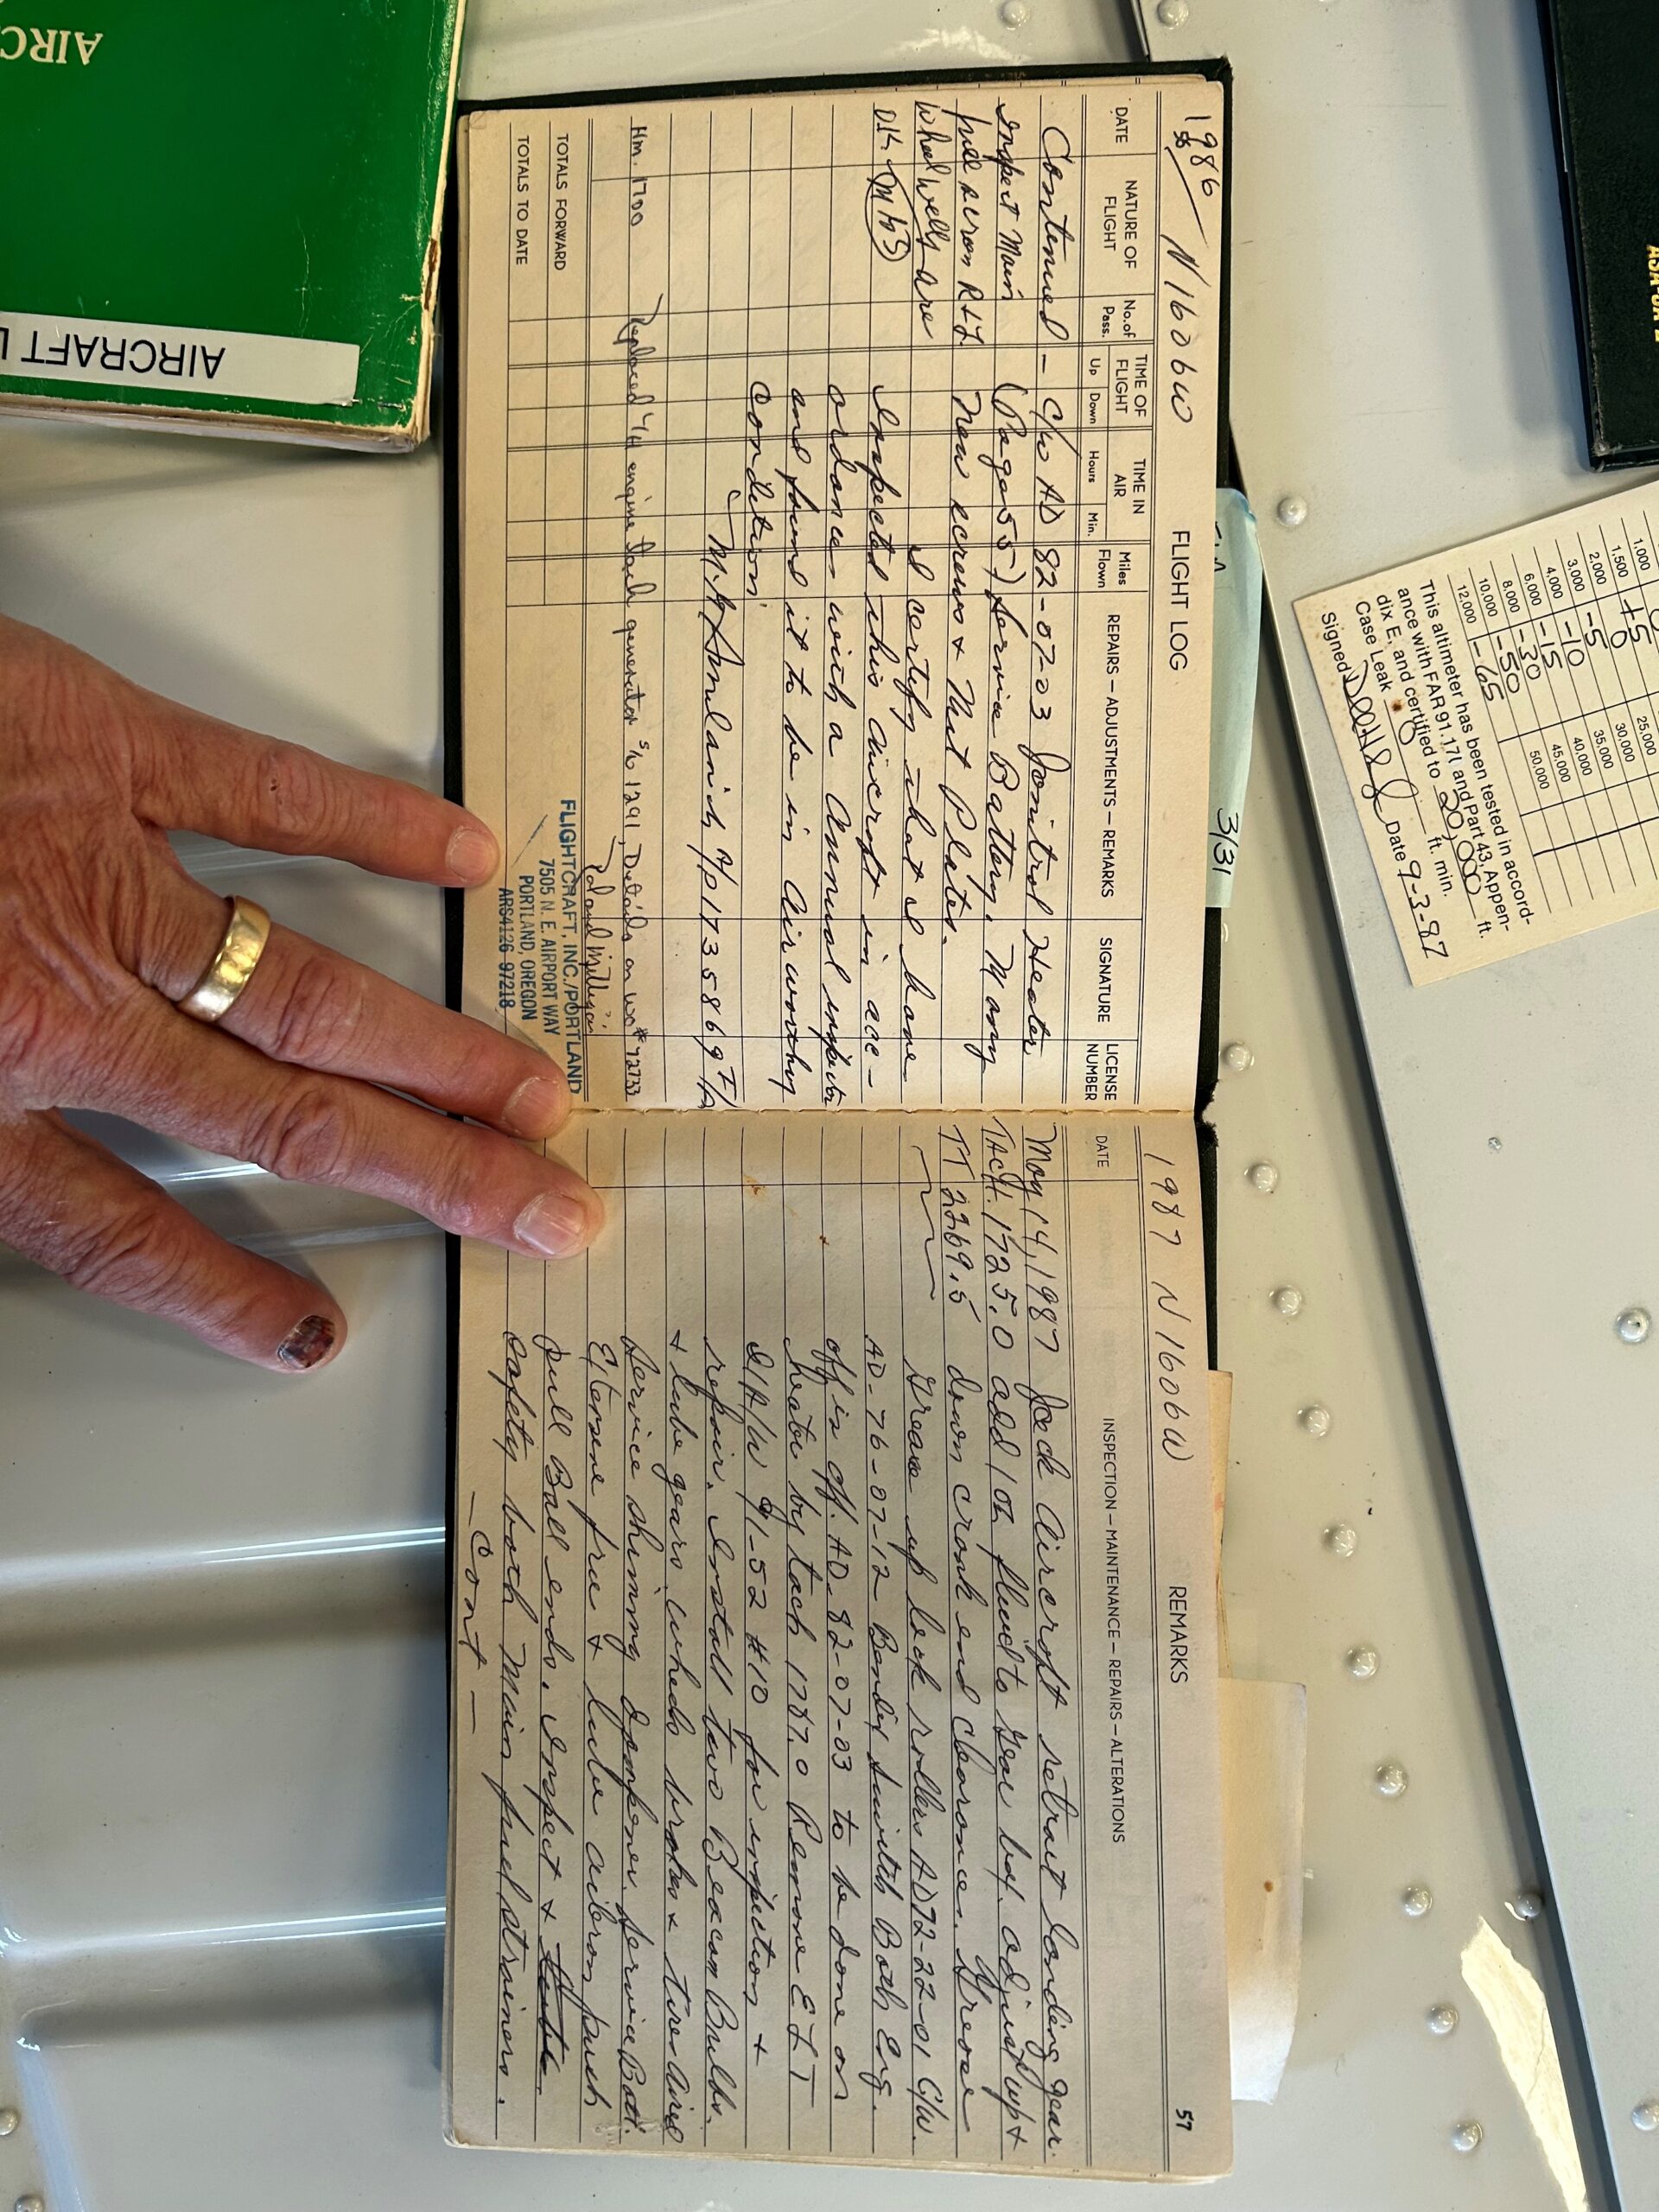 1986 N1606W FLIGHT LOG
DATE NATURE OF FLIGHT No. of Pass. TIME OF FLIGHT Up Down TIME IN AIR Hours Min. Miles Flown REPAIRS—ADJUSTMENTS—REMARKS SIGNATURE LICENSE NUMBER
Continued - C/W AD 82-07-03 Janitrol Heater.
Inspect Main (Page 55) Service Battery. Many
R+L New screws + Nut Plates.
Wheel wells are I certify that I have
OK inspected this aircraft in acc-
ordance with a Annual
and found it to be in airworthy
condition.
A/P 1735869 I/A
Hm. 1700 Replaced engine generator S/N 1291, Details on WO# 72733
Roland Milligan
TOTALS FORWARD
TOTALS TO DATE
FLIGHTCRAFT, INC./PORTLAND
7505 N. E. AIRPORT WAY
PORTLAND, OREGON
ARS4126 97218
1987 N1606W REMARKS 57
DATE INSPECTION—MAINTENANCE—REPAIRS—ALTERATIONS
May 14, 1987 Jack Aircraft retract landing gear.
TACH. 1725.0 add 1 oz fluid to gear box. adjust up +
TT 2269.5 down crank end clearance. Grease
Grease up lock rollers AD 72-22-01 C/W.
AD-76-07-12 Bendix Switch Both Eng.
off is off. AD-82-07-03 to be done on
heater by tach 1787.0 Remove ELT
I/A/W 91-52 #10 for inspection +
repair. Install two Beacon Bulbs.
+ lube gears wheels brakes + tires
Service shimmy dampener. Service Batt.
+ lube aileron push
pull Ball ends. Inspect +
safety both Main fuel strainers.
— Cont —
AIRCRAFT L
AIRC
3/31
1,000
1,500 +5
2,000 0
3,000 -5
4,000 -10
6,000 -15
8,000 -30
10,000 -50
12,000 -65
25,000
30,000
35,000
40,000
45,000
50,000
This altimeter has been tested in accord-
ance with FAR 91.171 and Part 43, Appen-
dix E, and certified to 20,000 ft.
Case Leak 0 ft. min.
Signed Date 9-3-87